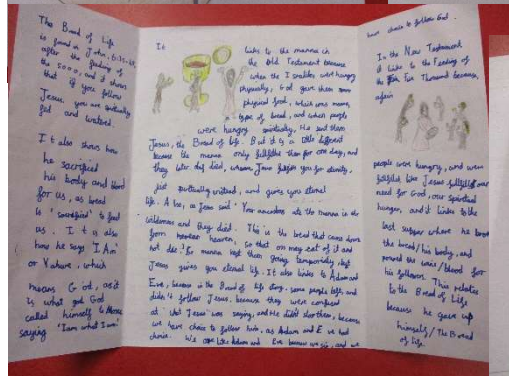 The Bread of Life
is found in John 6:25-59,
after the feeding of
the 5000, and it shows
that if you follow
Jesus, you are spiritually
fed and watered.
It also shows how
he sacrificed
his body and blood
for us, as bread
is 'sacrificed' to feed
us. It is also
how he says 'I Am'
or Yahwe, which
means God, as it
is what god God
called himself to Moses
saying 'I am what I am'
It links to the manna in
the Old Testament because
when the Israelites were hungry
physically, God gave them some
physical food, which was mana,
a type of bread, and when people
were hungry spiritually, He sent them
Jesus, the Bread of Life. But it is a little different
because the manna only fulfilled them for one day, and
they later died, whereas Jesus fulfils you for eternity,
just spiritually instead, and gives you eternal
life. Also, as Jesus said 'Your ancestors ate the manna in the
wilderness and they died. This is the bread that came down
from heaven, so that on may eat of it and
not die.' So manna kept them going temporarily, but
Jesus gives you eternal life. It also links to Adam and
Eve, because in the Bread of life story, some people left, and
didn't follow Jesus, because they were confused
at what Jesus was saying, and He didn't stop them, because
we have choice to follow him, as Adam and Eve had
choice. We are like Adam and Eve because we sin, and we
have choice to follow God.
In the New Testament
it links to the Feeding of
the Five Thousand because,
again
people were hungry, and were
fulfilled, like Jesus fulfills our
need for God, our spiritual
hunger, and it links to the
last supper where he broke
the bread/his body, and
poured the wine/blood for
his followers. This relates
to the Bread of Life
because he gave up
himself/The Bread
of life.